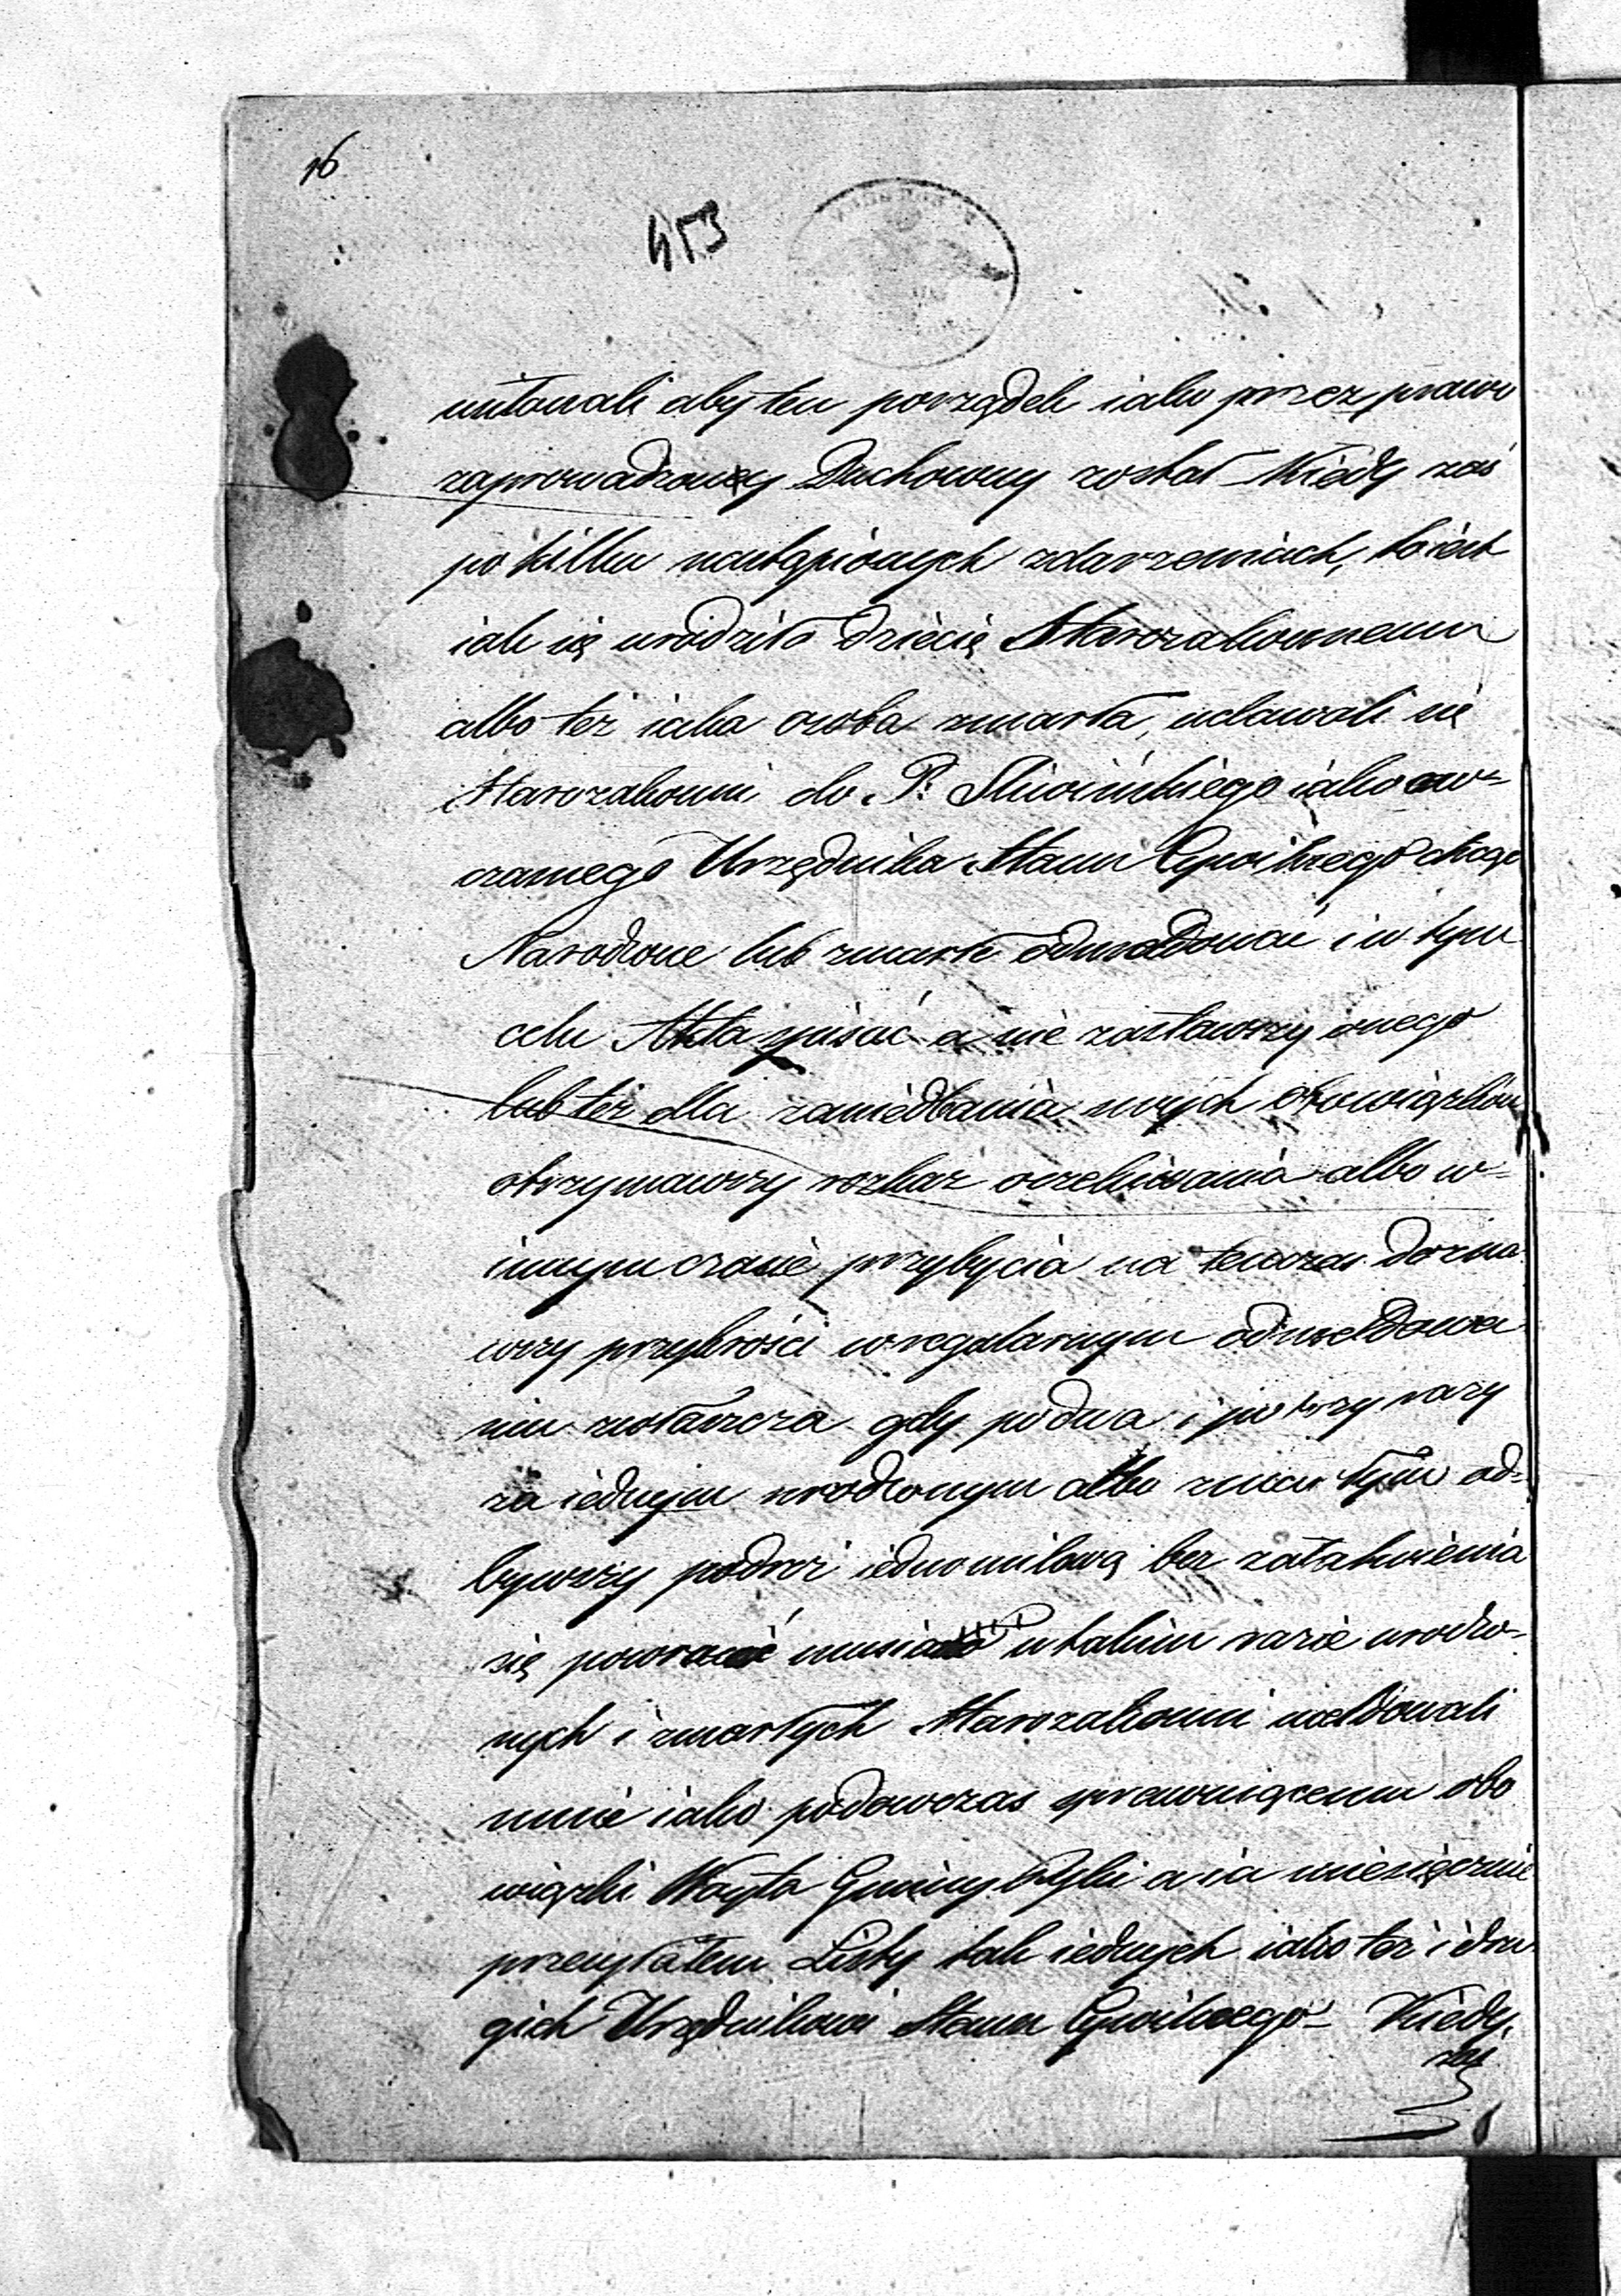 16
453
usiłowali aby ten porządek iako przez prawo
zaprowadzony Duchowny został Kiedy zaś
po kilku nastąpionych zdarzeniach, to iest
iak się urodziło dziecię Starozakonnemu
albo też iaka osoba zmarła, udawali się
Starozakonni do P. Sliwinskiego iako ów-
czasnego Urzędnika Stanu Cywilnego chcąc
Narodzone lub zmarłe odmeldować i w tym
celu Akta spisać a nie zastawszy onego
lub też dla zaniedbania swych obowiązków
otrzymawszy rozkaz oczekiwania albo w-
innym czasie przybycia na tenczas dozna-
wszy przykrości w regularnym odmeldowa
niu zwłaszcza gdy po dwa i po trzy razy
za iednym urodzonym albo zmarłym od-
bywszy podroż iednomilową bez załatwienia
się powracać w takim razie urodzo-
nych i zmarłych Starozakonni meldowali
mnie iako podowczas sprawuiącemu obo
wiązki Woyta Gminy tylko a ia miesięcznie
przesyłałem Listy tak iednych iako też i dru
gich Urzędnikowi Stanu Cywilnego – Kiedy
zaś